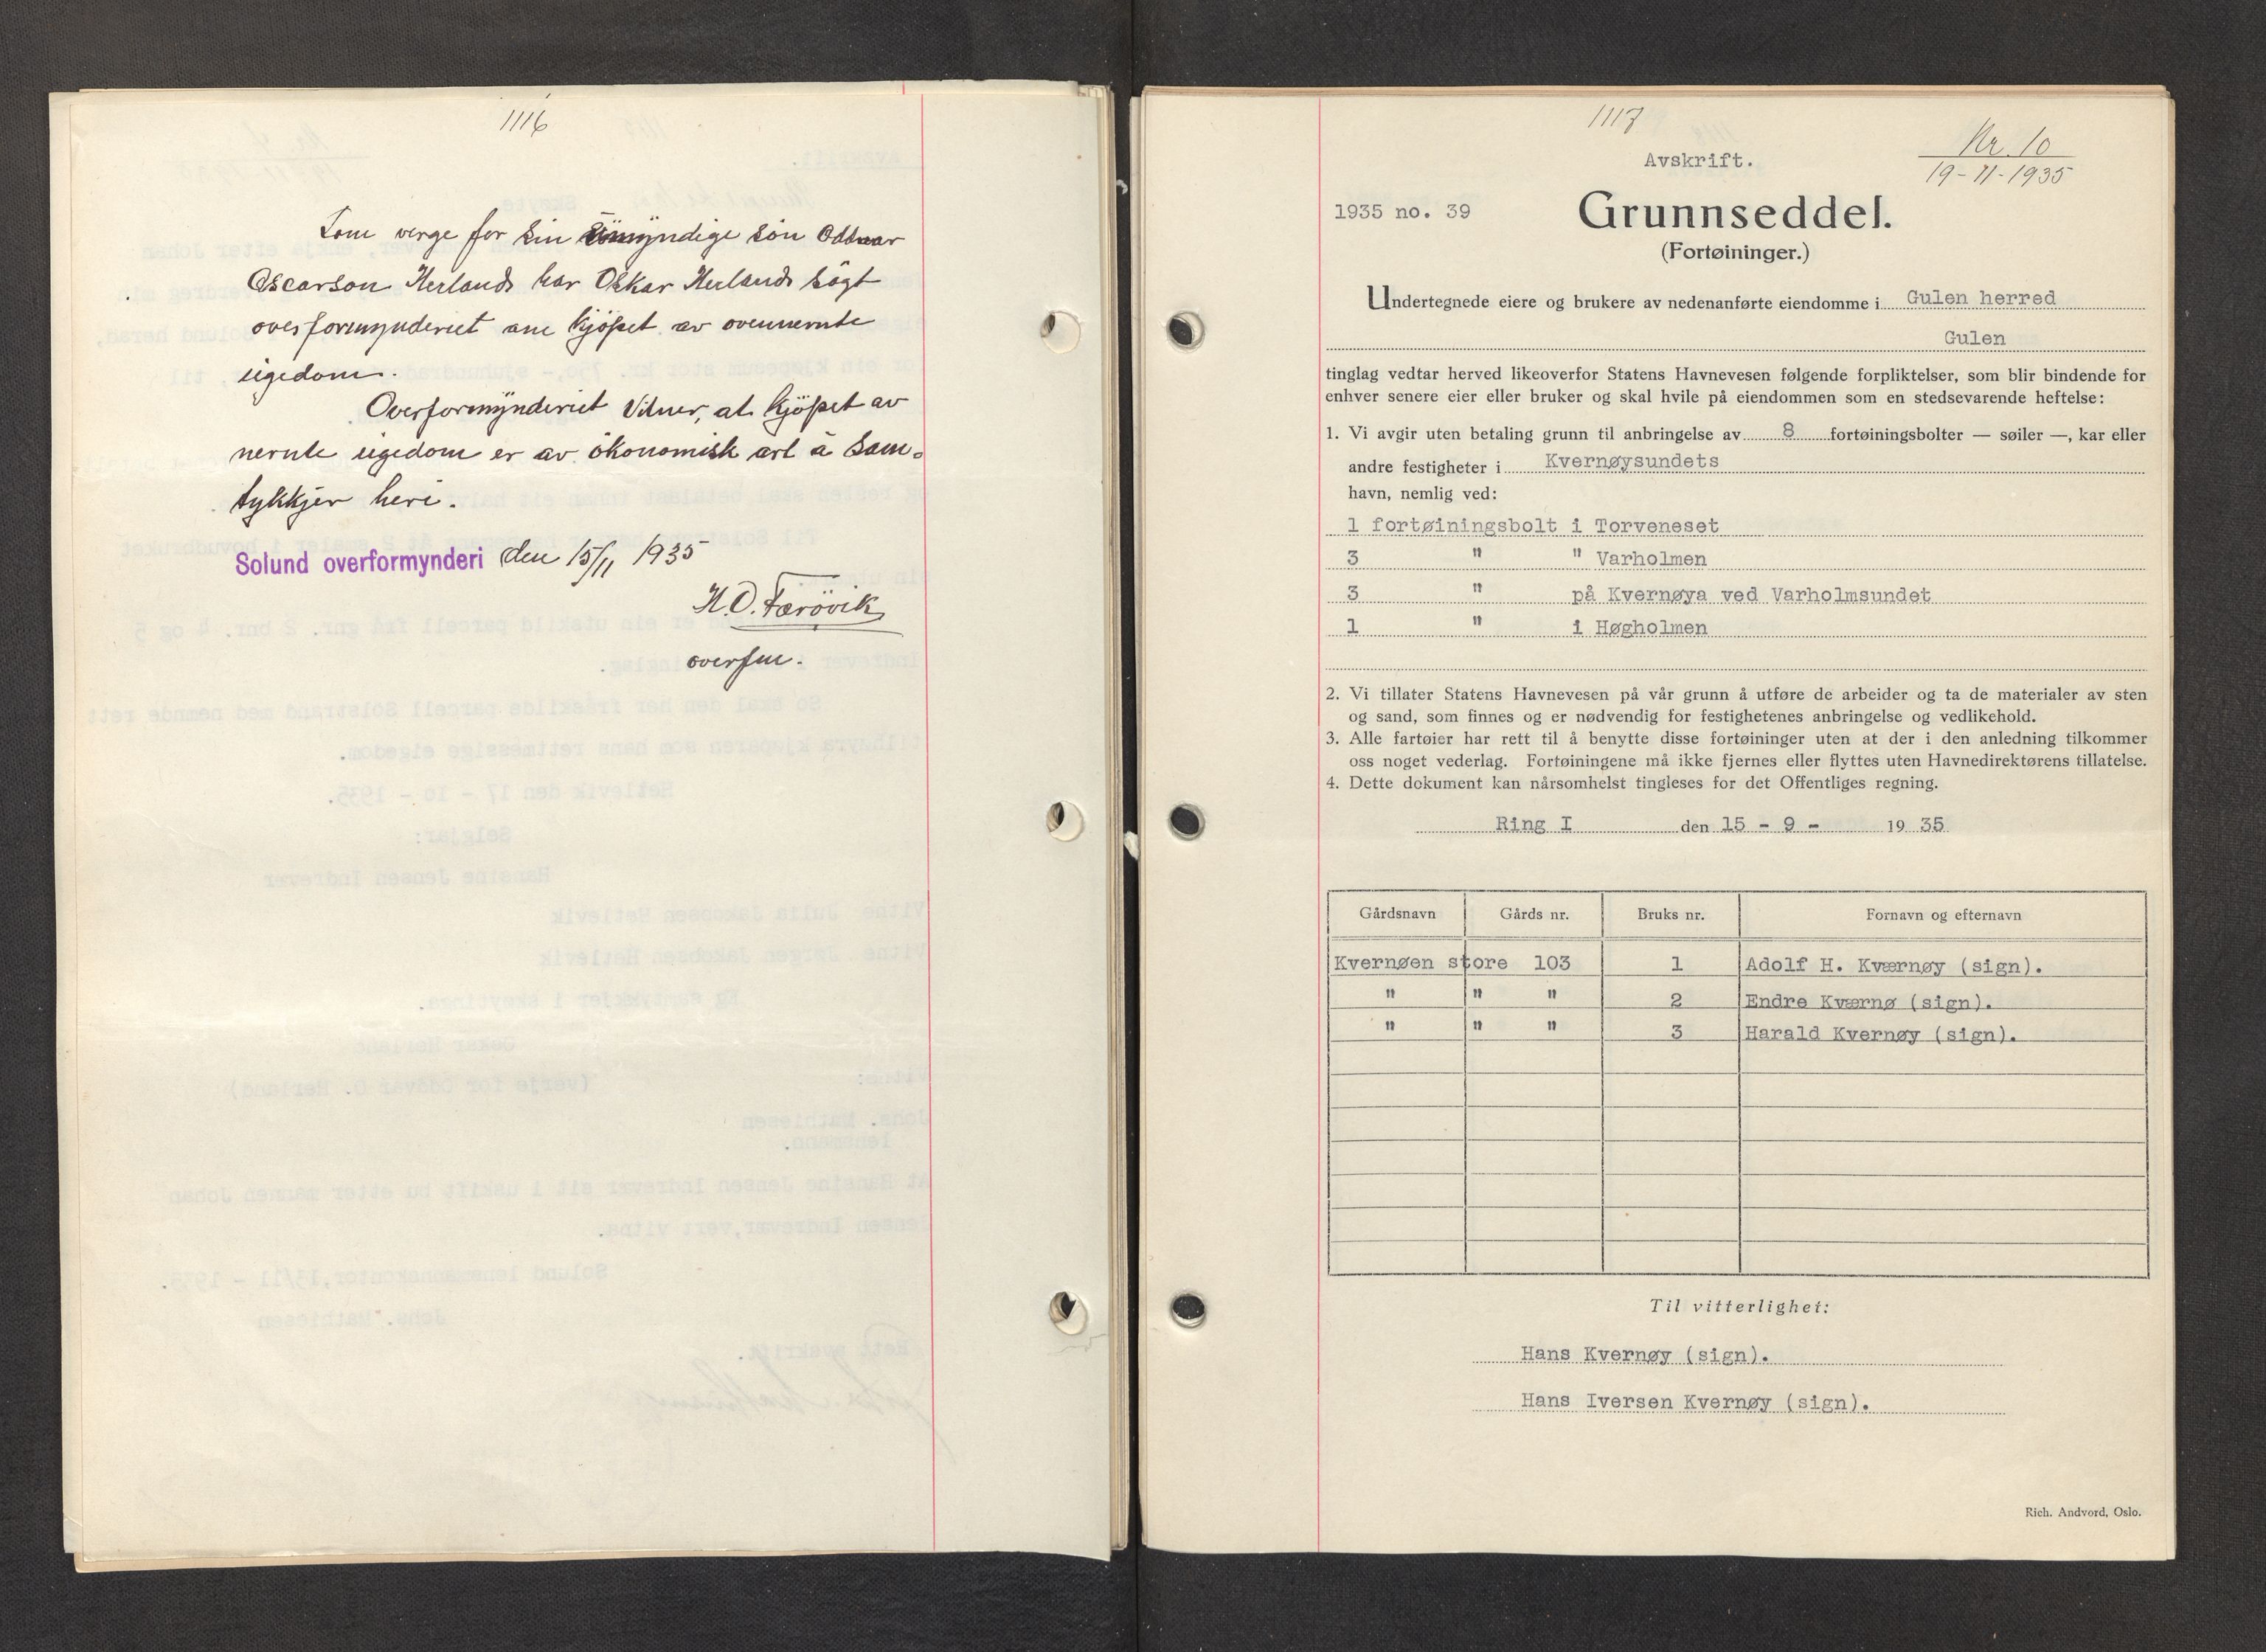 1116
Som verge for sin umyndige son Oddvar
Oscarson Herland har Oskar Herland søgt
overformynderiet om kjöpet av ovennemte
eigedom.
Overformynderiet vitner, at kjöpet av
nemte eigedom er av ökonomisk art å sam-
tykkjer heri.
Solund overformynderi den 15/11 1935
H.O. Færövik
overfm.
1117
Avskrift.
Nr. 10
19-11-1935
1935 no. 39
Grunnseddel.
(Fortøininger.)
Undertegnede eiere og brukere av nedenanførte eiendomme i Gulen herred
Gulen
tinglag vedtar herved likeoverfor Statens Havnevesen følgende forpliktelser, som blir bindende for
enhver senere eier eller bruker og skal hvile på eiendommen som en stedsevarende heftelse:
1. Vi avgir uten betaling grunn til anbringelse av 8 fortøiningsbolter — søiler —, kar eller
andre festigheter i Kvernøysundets
havn, nemlig ved:
1 fortøiningsbolt i Torveneset
3 " " Varholmen
3 " på Kvernøya ved Varholmsundet
1 " i Høgholmen
2. Vi tillater Statens Havnevesen på vår grunn å utføre de arbeider og ta de materialer av sten
og sand, som finnes og er nødvendig for festighetenes anbringelse og vedlikehold.
3. Alle fartøier har rett til å benytte disse fortøininger uten at der i den anledning tilkommer
oss noget vederlag. Fortøiningene må ikke fjernes eller flyttes uten Havnedirektørens tillatelse.
4. Dette dokument kan nårsomhelst tingleses for det Offentliges regning.
Ring I den 15 - 9 - 19 35
Gårdsnavn Gårds nr. Bruks nr. Fornavn og efternavn
Kvernøen store 103 1 Adolf H. Kværnøy (sign).
" " " 2 Endre Kværnø (sign).
" " " 3 Harald Kvernøy (sign).
Til vitterlighet:
Hans Kvernøy (sign).
Hans Iversen Kvernøy (sign).
Rich. Andvord, Oslo.